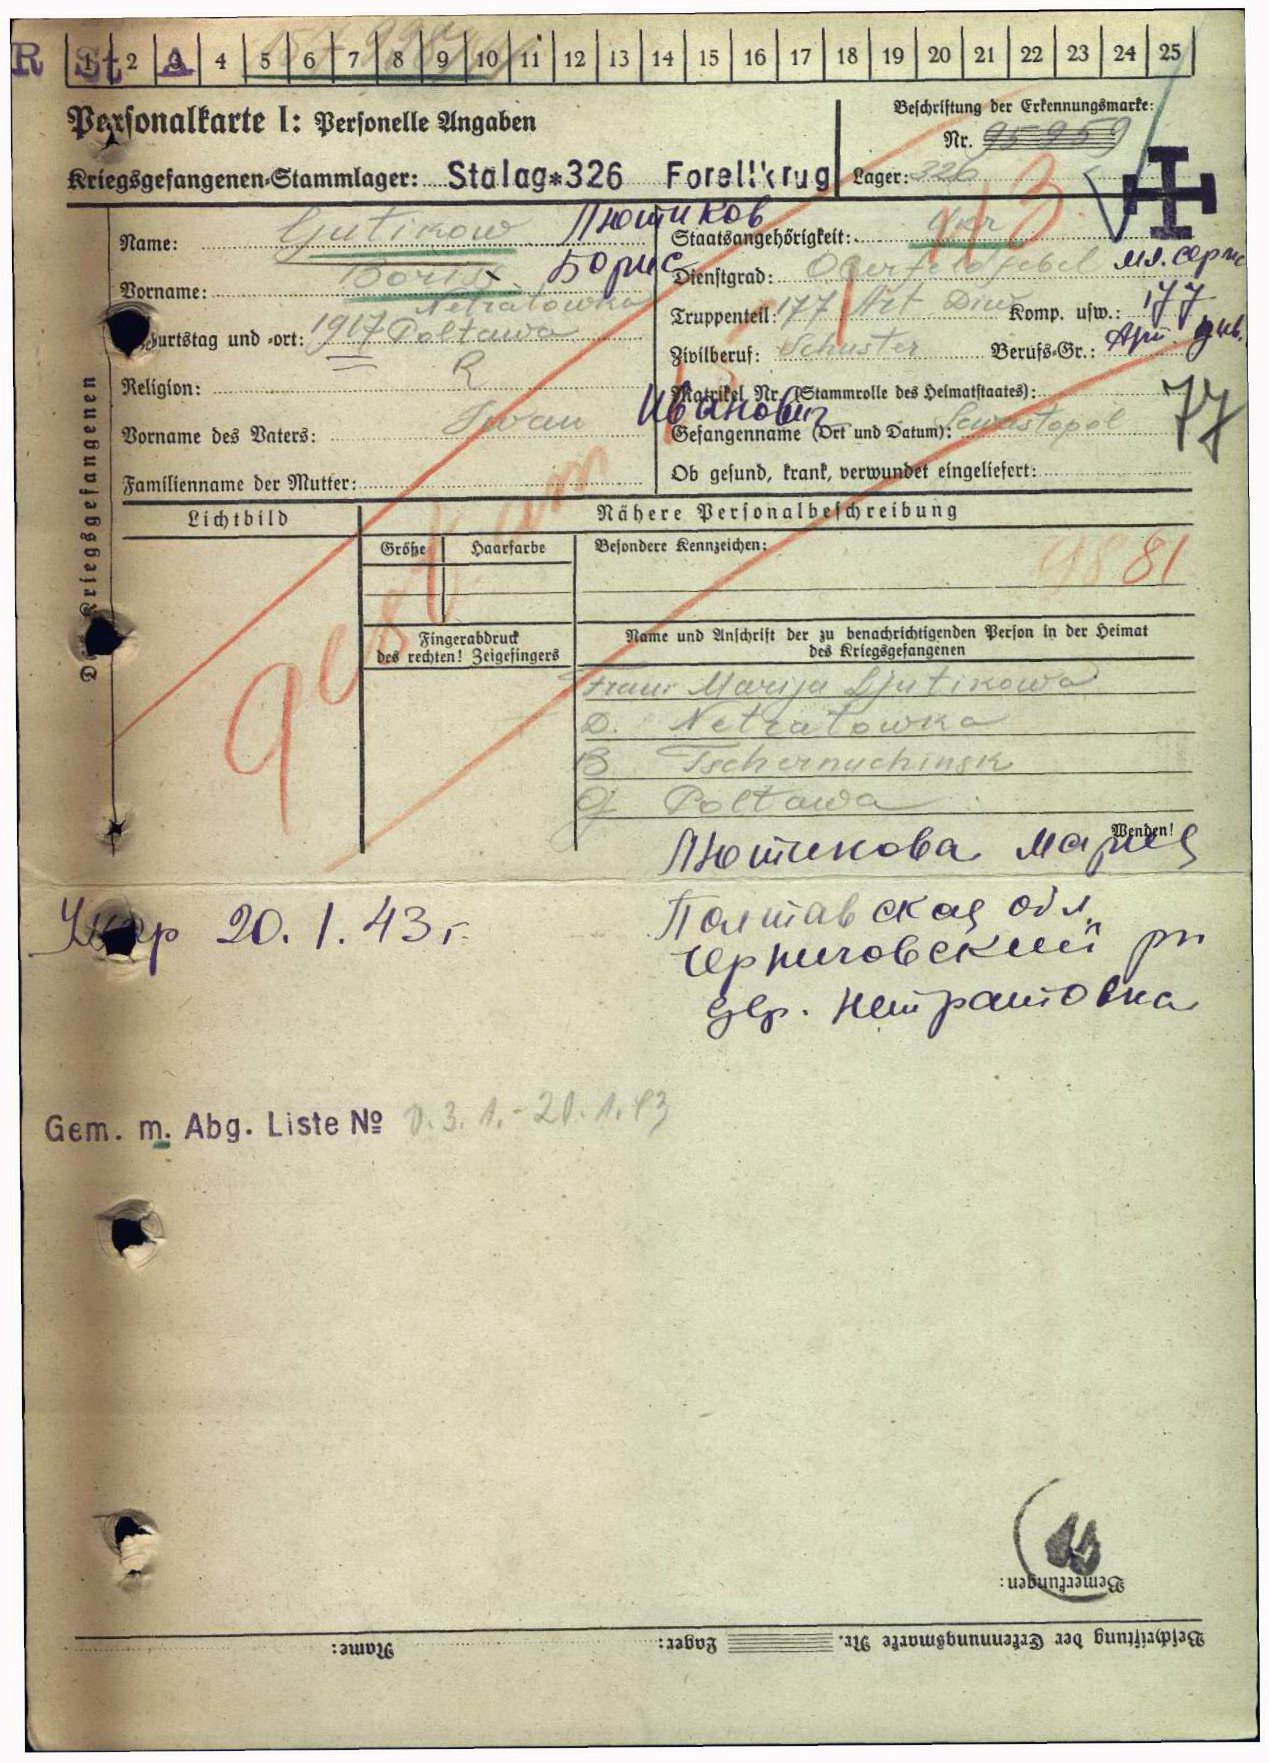 R St A
1 2 3 4 5 6 7 8 9 10 11 12 13 14 15 16 17 18 19 20 21 22 23 24 25
Personalkarte I: Personelle Angaben
Beschriftung der Erkennungsmarke:
Nr. 95959
Kriegsgefangenen-Stammlager: Stalag*326 Forellkrug
Lager: 326
Name: Ljutikow Лютиков
Staatsangehörigkeit: Ukr
Vorname: Boris Борис
Dienstgrad: Oberfeldfebel мл. серж
Netratowka
Truppenteil: 177 Art Diw Komp. usw.: 177
Арт. див.
Geburtstag und -ort: 1917 Poltawa
Zivilberuf: Schuster Berufs-Gr.:
Religion: R
Matrikel Nr. (Stammrolle des Heimatstaates):
77
Vorname des Vaters: Iwan Иванович
Gefangenname (Ort und Datum): Sewastopol
Familienname der Mutter:
Ob gesund, krank, verwundet eingeliefert:
Des Kriegsgefangenen
Lichtbild
Nähere Personalbeschreibung
Größe Haarfarbe
Besondere Kennzeichen:
9881
gestorben
Fingerabdruck
des rechten! Zeigefingers
Name und Anschrift der zu benachrichtigenden Person in der Heimat
des Kriegsgefangenen
Frau: Marija Ljutikowa
D. Netratowka
B. Tschernuchinsk
G. Poltawa
Wenden!
Лютикова Мария
Умер 20.1.43 г.
Полтавская обл.
Черниговский рн
дер. Нетратовка
Gem. m. Abg. Liste № v. 3.1.-20.1.43
Bemerkungen:
Beschriftung der Erkennungsmarke Nr. Lager: Name: